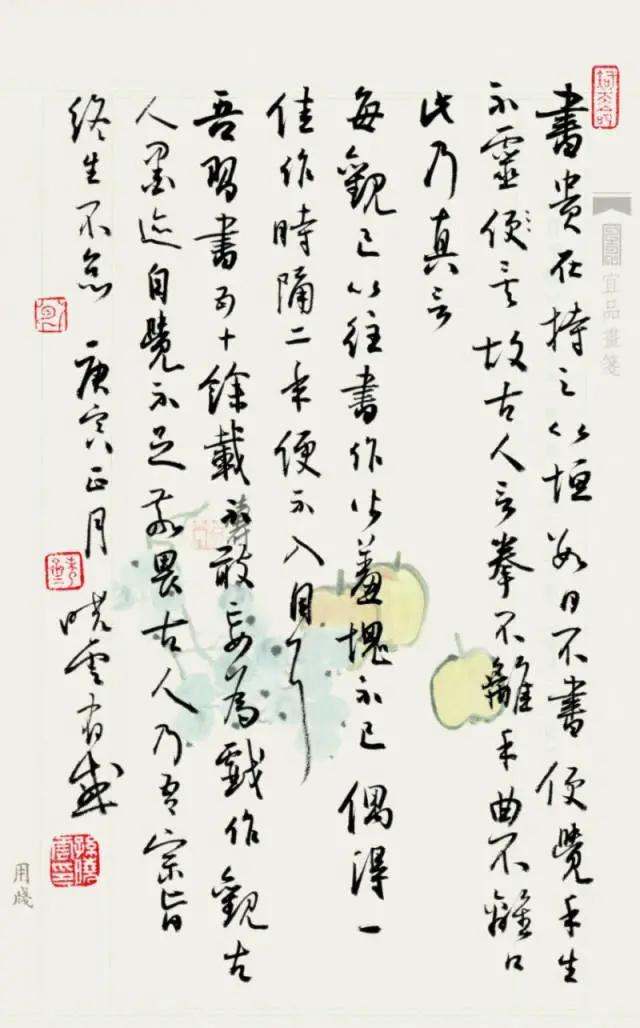 書貴在持之以恒數日不書便覺手生
不靈便矣故古人言拳不離手曲不離口
此乃真言
每觀已以往書作皆羞愧不已偶得一
佳作時隔二年便不入目了
吾習書五十餘載不敢妄為戲作觀古
人墨迹自覺不足敬畏古人乃吾宗旨
終生不怠 庚寅正月 曉雲有感
孫曉雲印
宜品畫箋
用牋